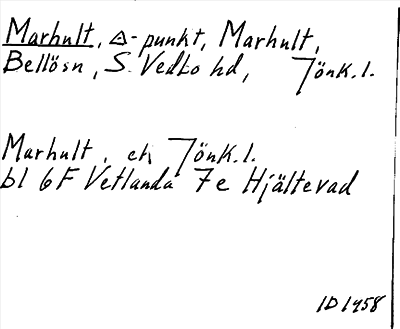 Marhult, △-punkt, Marhult,
Bellösn, S. Vedbo hd, Jönk.l.
Marhult, ek, Jönk.l.
bl 6F Vetlanda 7e Hjältevad
ID 1958